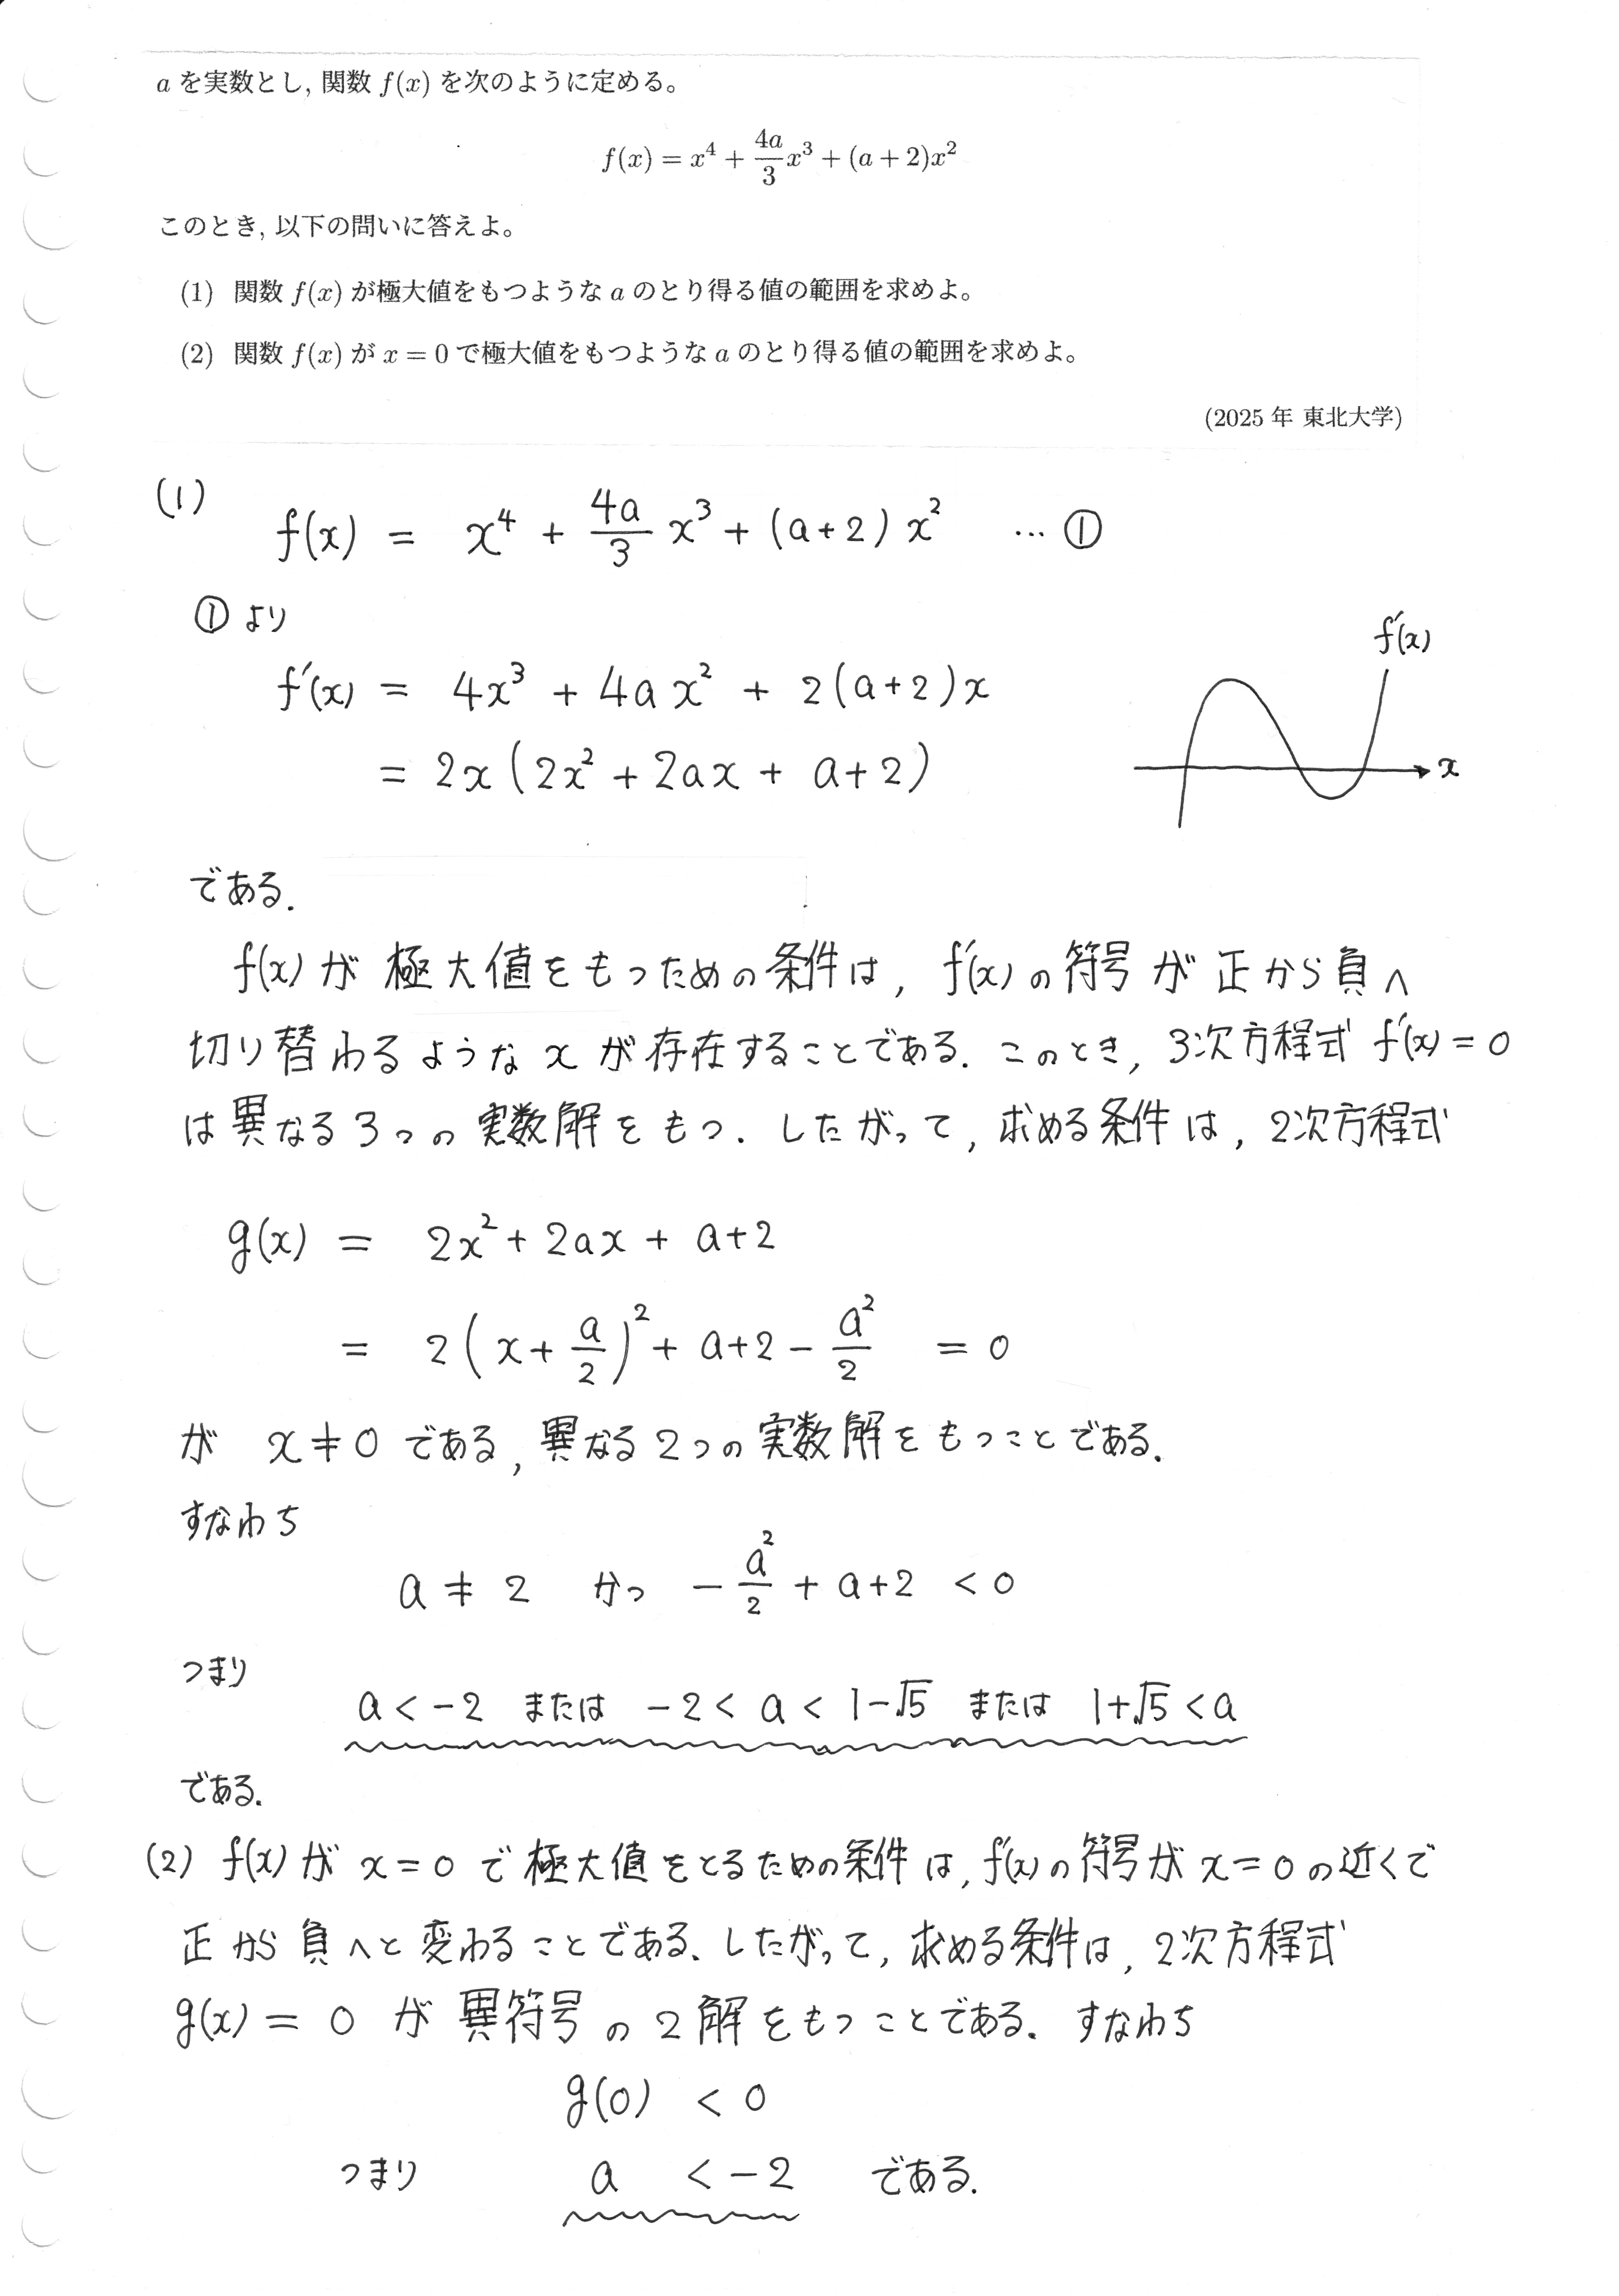 a を実数とし, 関数 f(x) を次のように定める。
f(x) = x^4 + \frac{4a}{3}x^3 + (a + 2)x^2
このとき, 以下の問いに答えよ。
(1) 関数 f(x) が極大値をもつような a のとり得る値の範囲を求めよ。
(2) 関数 f(x) が x = 0 で極大値をもつような a のとり得る値の範囲を求めよ。
(2025 年 東北大学)
(1)
f(x) = x^4 + \frac{4a}{3} x^3 + (a+2) x^2 … ①
① より
f'(x)
f'(x) = 4x^3 + 4a x^2 + 2(a+2)x
= 2x (2x^2 + 2ax + a+2)
x
である.
f(x) が 極大値をもつための条件は, f'(x) の符号が正から負へ
切り替わるような x が存在することである. このとき, 3次方程式 f'(x) = 0
は異なる3つの実数解をもつ. したがって, 求める条件は, 2次方程式
g(x) = 2x^2 + 2ax + a+2
= 2(x + \frac{a}{2})^2 + a+2 - \frac{a^2}{2} = 0
が x ≠ 0 である, 異なる2つの実数解をもつことである.
すなわち
a ≠ 2 かつ - \frac{a^2}{2} + a+2 < 0
つまり
a < -2 または -2 < a < 1-√5 または 1+√5 < a
である.
(2) f(x) が x = 0 で極大値をとるための条件は, f'(x) の符号が x = 0 の近くで
正から負へと変わることである. したがって, 求める条件は, 2次方程式
g(x) = 0 が異符号の2解をもつことである. すなわち
g(0) < 0
つまり a < -2 である.